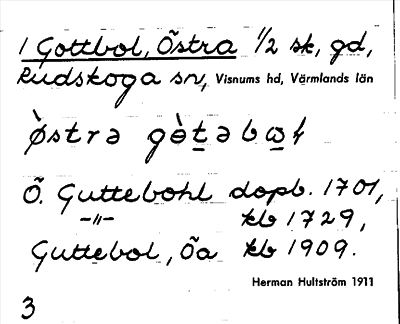 1 Gottbol, Östra 1/2 sk, gd,
Rudskoga sn, Visnums hd, Värmlands län
Ö. Guttebohl dopb. 1701,
-"- kb 1729,
Guttebol, Öa kb 1909.
Herman Hultström 1911
3